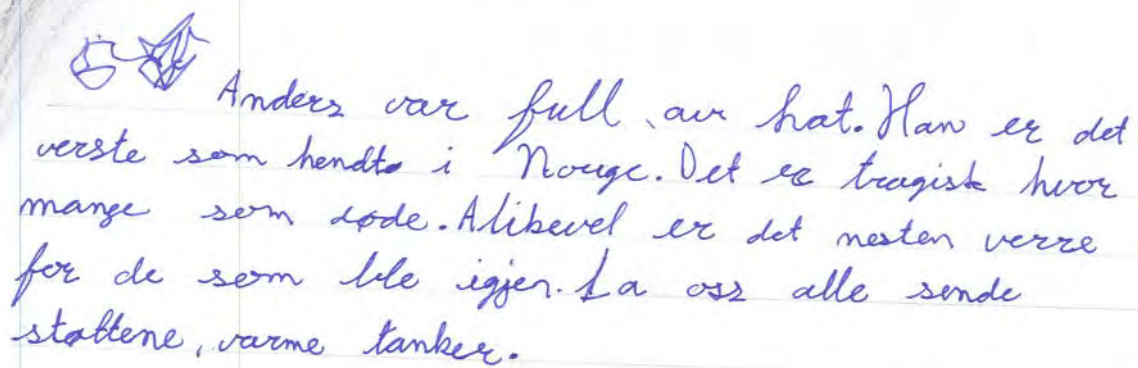 Anders var full av hat. Han er det
verste som hendte i Norge. Det er tragisk hvor
mange som døde. Alikevel er det nesten verre
for de som ble igjen. La oss alle sende
støttene, varme tanker.